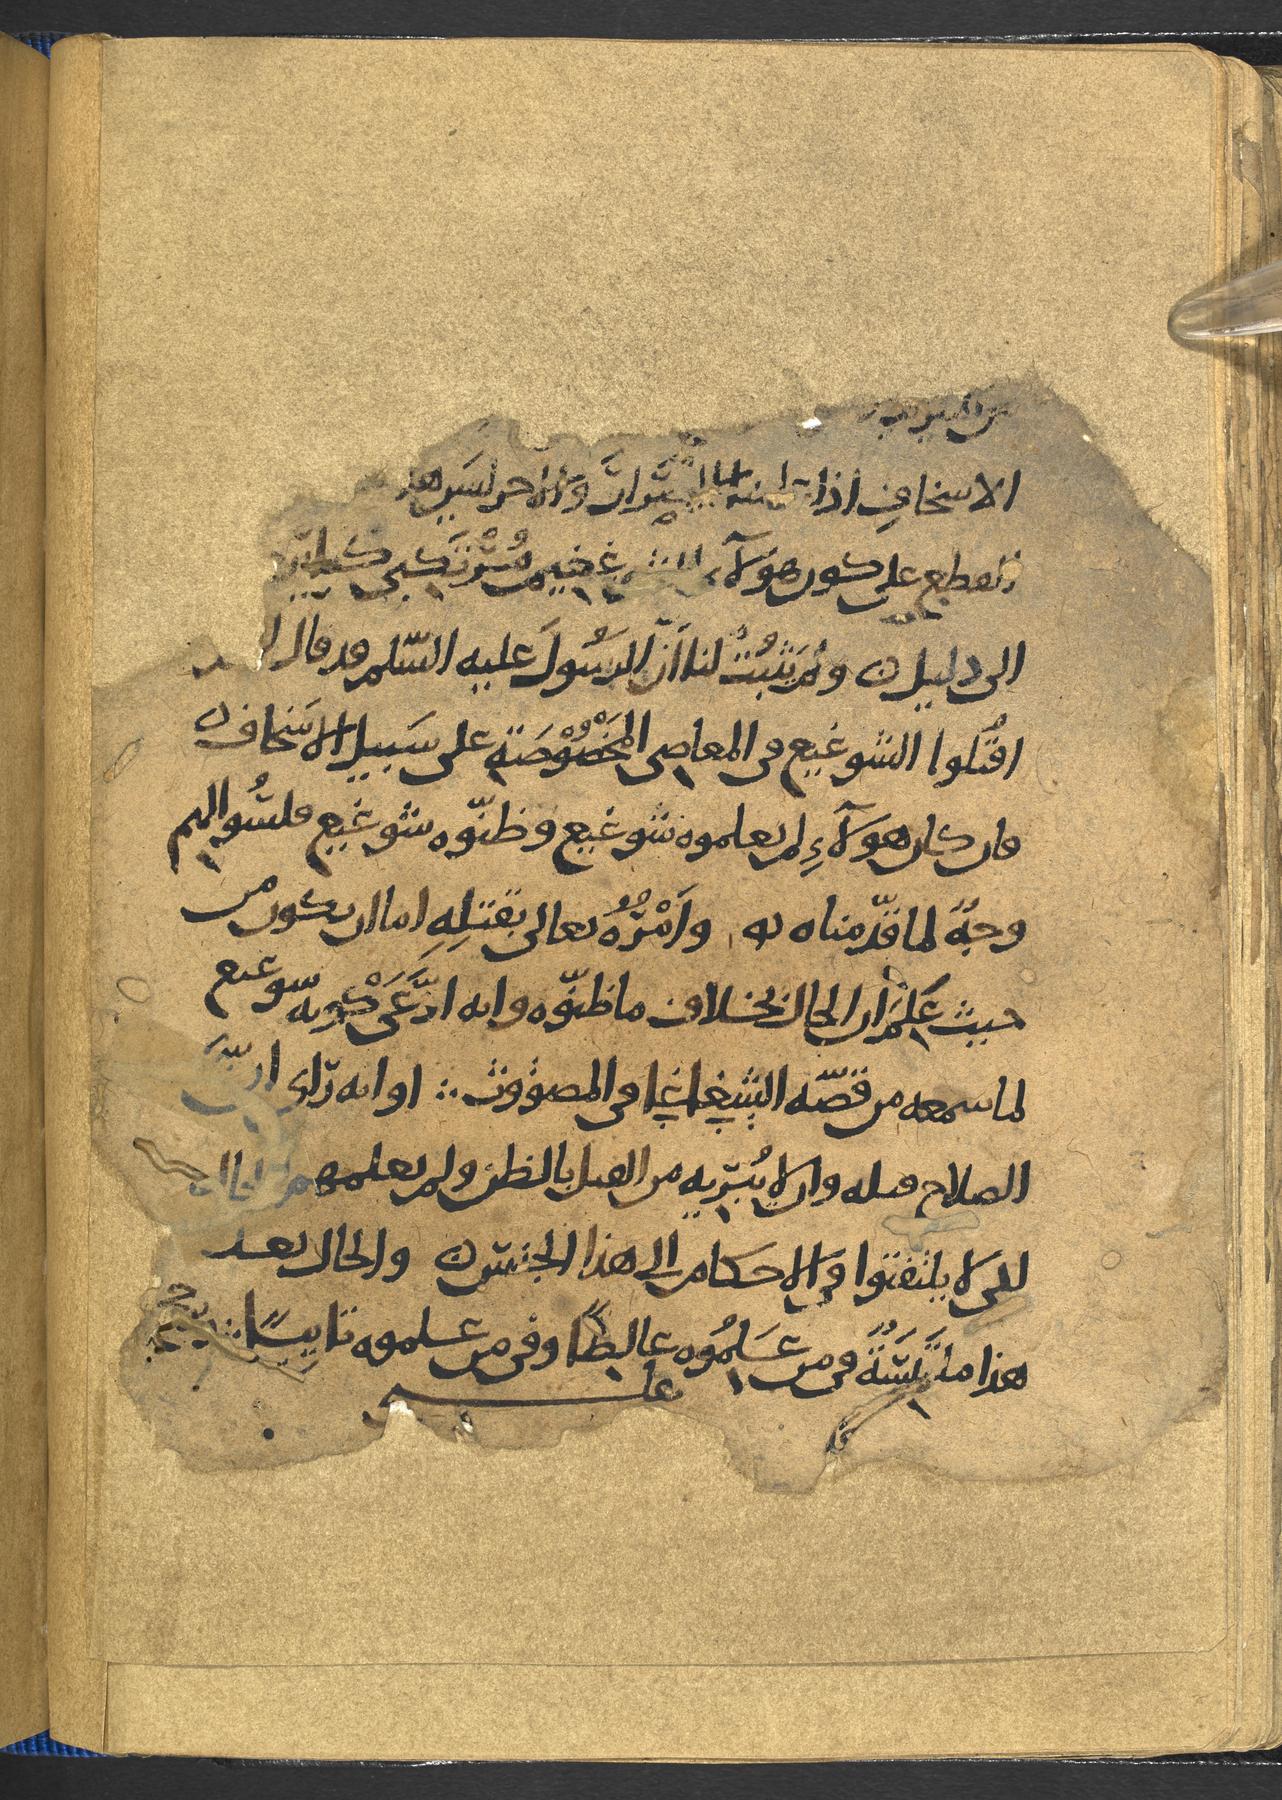 الاسخافِ اذا وَالاحر
نقطع على كون هَولآءِ الشوغغيم مُرْتَكبى كبايَر
الى دليل ن ولم يَثبُتْ لنا اَنّ الرسُولَ عليه السّلم قد قال
اقتُلوا الشوغيغ فى المعاصى المَخْصُوْصَةِ على سَبيل الاسخاف ن
فان كان هَولآءِ لم يعلموه شوغيغ وظنّوه شوغيغ فلسُوالهم
وجهٌ لما قدّمناه له وَاَمْرُهُ تعالى بقتلِهِ اما ان يكون من
حيث عَلِمَ ان الحال بخلاف ما ظنّوه وانه ادَّعَى كَوْنه شوغيغ
لما سمعه من قصّه الشِغاغا فى المصووث ∴ او انه رَاى ان
الصلاح قتله وان لا يُبَرّيه من القتل بالظن ولم يعلمهم
للى لا يلتفتوا فى الاحكام الى هذا الجنس ن والحال بعد
هذا ملتَبَسَةٌ فى من عَلِمُوه عالِطًا وفى من علموه تايبيًا
على